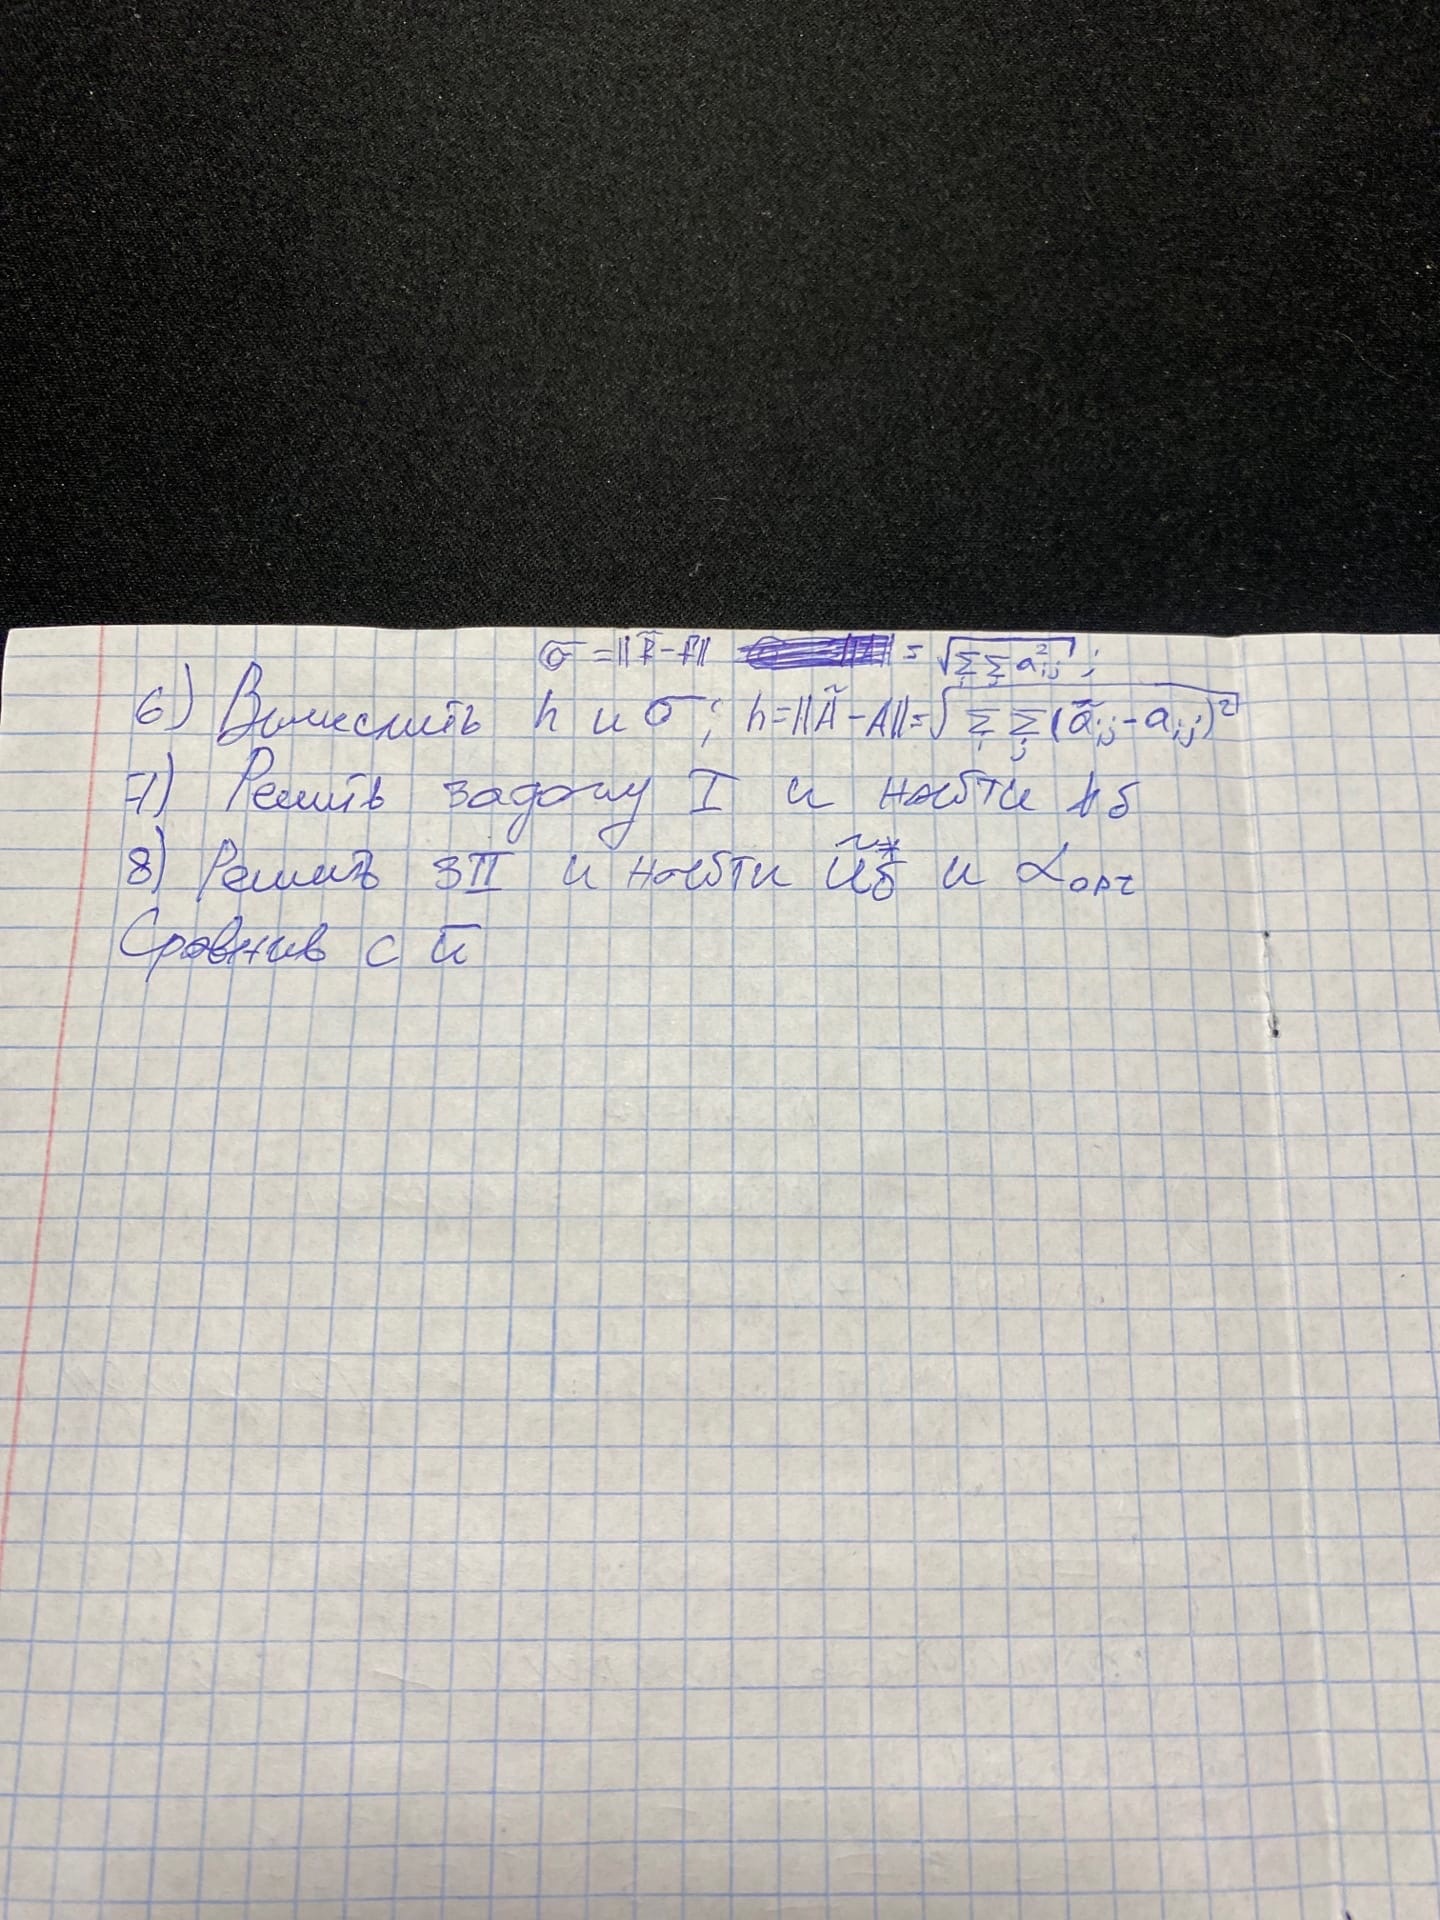 σ = ||f̃ - f|| = √ΣΣ a²ij ;
6) Вычислить h и σ; h = ||Ã - A|| = √Σi Σj (ãij - aij)²
7) Решить задачу I и найти δ
8) Решить з II и найти ũ*δ и αорт
Сравнив с ū